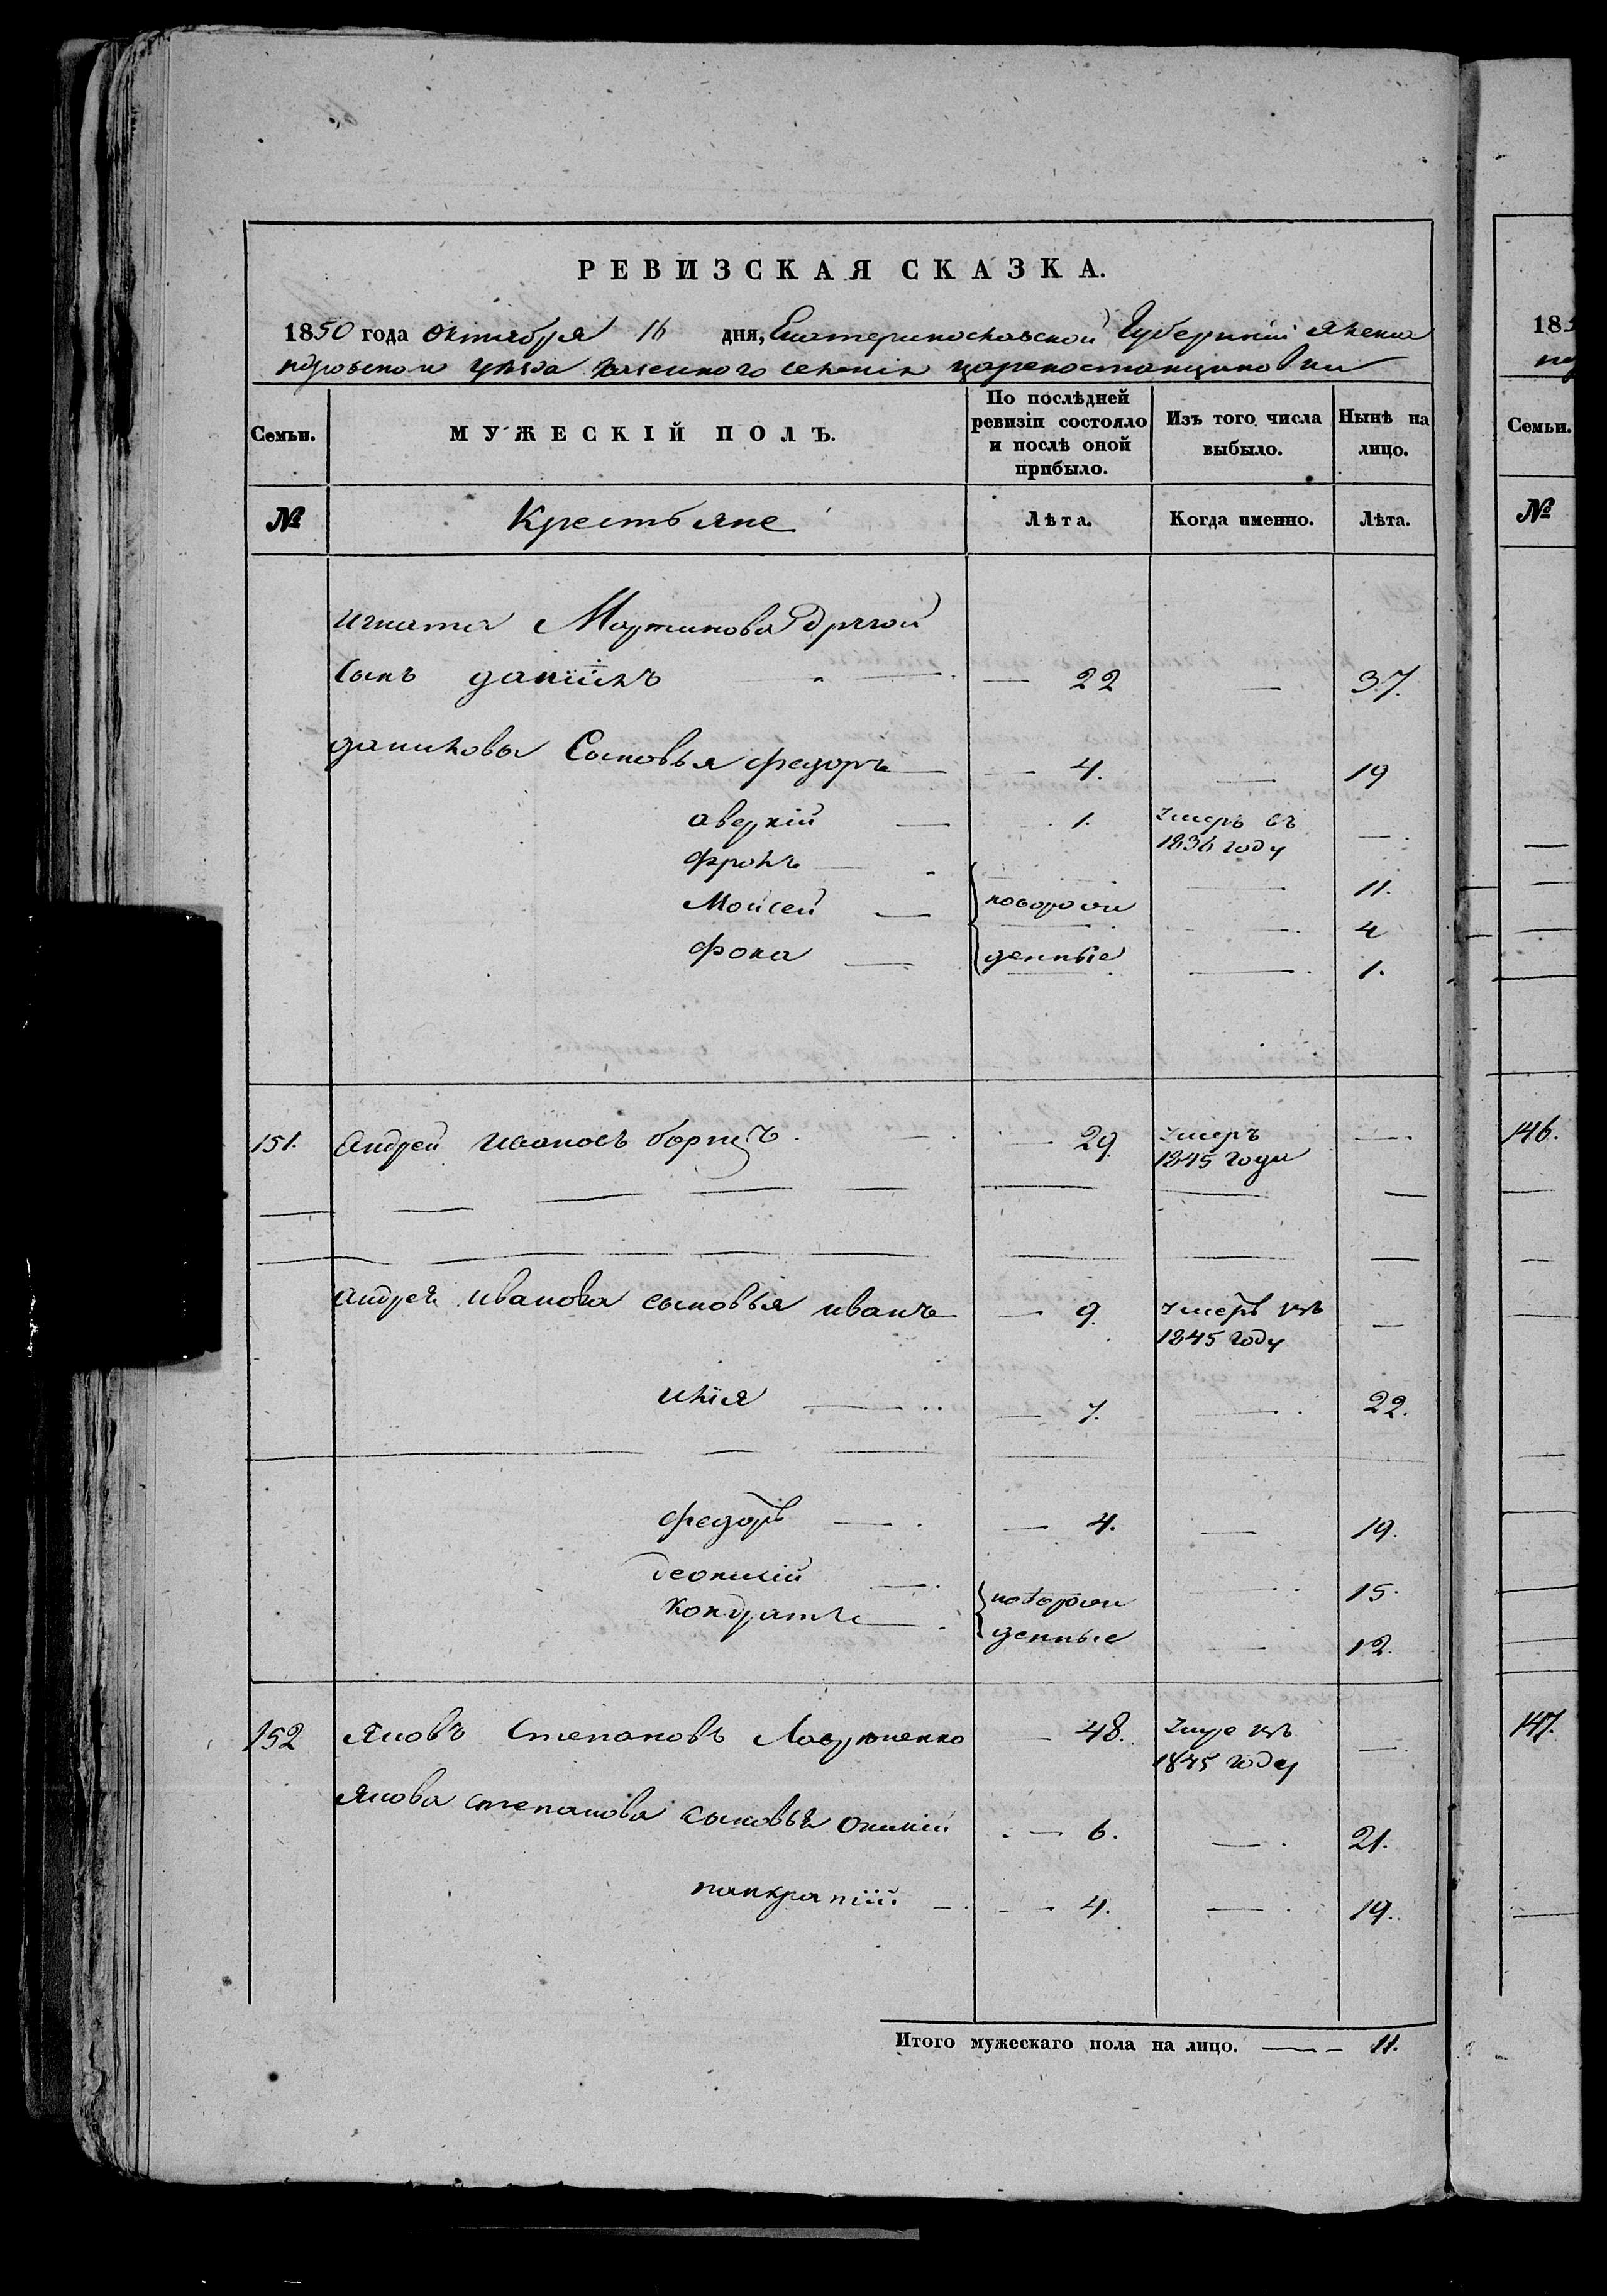 РЕВИЗСКАЯ СКАЗКА.
1850 года октября 16 дня, Екатеринославской Губерніи Алекса
ндровскаго уѣзда казенного селенія цареконстантиновки
Семьи. МУЖЕСКІЙ ПОЛЪ. По послѣдней ревизіи состояло и послѣ оной прибыло. Изъ того числа выбыло. Нынѣ на лицо.
№ Крестьяне Лѣта. Когда именно. Лѣта.
игната Мартинова другой
сынъ даніилъ — 22 — 37.
данилова Сыновья федоръ — 4. — 19
аверкій — 1. Умеръ въ 1836 году —
фролъ — новорож — 11.
Моисей — — 4
фока — денные — 1.
151. Андрей Ивановъ борецъ. — 29. Умеръ 1845 года —
андрея иванова сыновья иванъ — 9. Умеръ въ 1845 году —
илія — 7. — 22.
федоръ — 4. — 19.
деонисій — новорож — 15.
Кондратъ — денные — 12.
152 Яковъ Степановъ — 48. 1845 году —
Якова степанова сыновья — 6. — 21.
панкратій — 4. — 19.
Итого мужескаго пола на лицо. — 11.
185
Семьи.
№
146.
147.